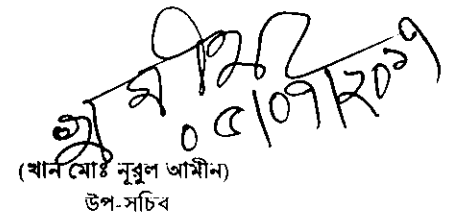 ০৫/০৭/২০১৭
(খান মোঃ নূরুল আমীন)
উপ-সচিব